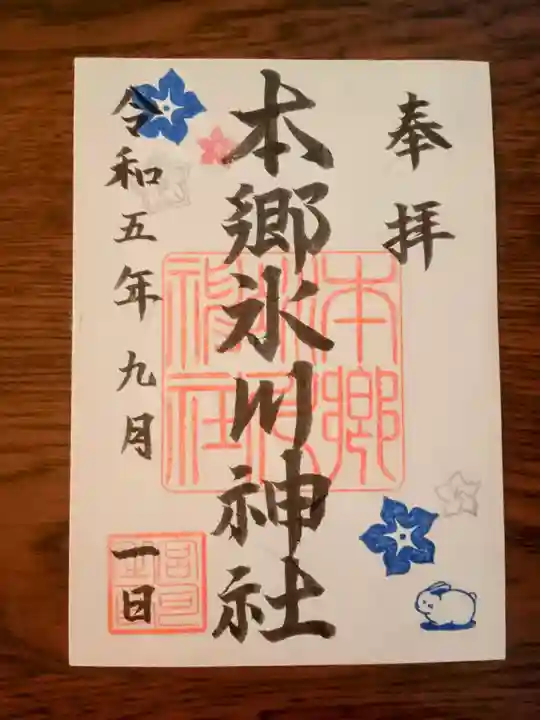 奉拝
本郷氷川神社
令和五年九月一日
本郷氷川神社